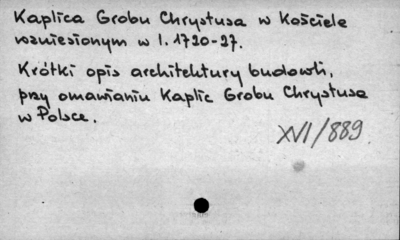 Kaplica Grobu Chrystusa w Kościele
wzniesionym w l. 1720-27.
Krótki opis architektury budowli,
przy omawianiu Kaplic Grobu Chrystusa
w Polsce.
XVI/889